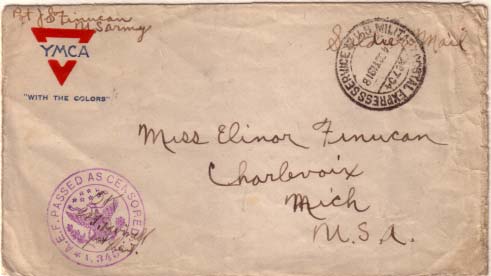 Pvt J S Finucan
U S Army
Soldiers Mail
YMCA
"WITH THE COLORS"
MILITARY POSTAL EXPRESS SERVICE
Miss Elinor Finucan
Charlevoix
Mich
U.S.A.
A.E.F. PASSED AS CENSORED